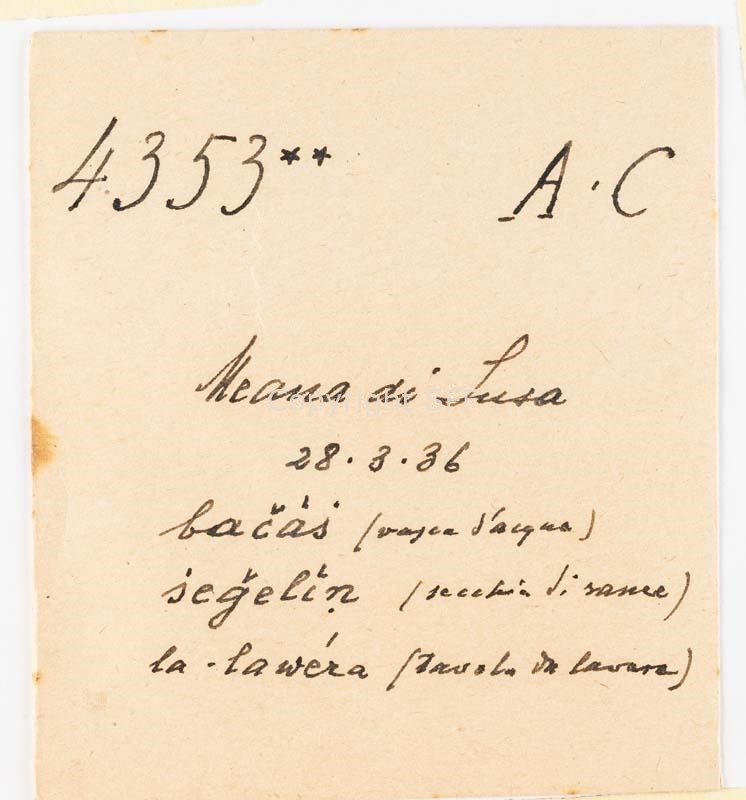 4353** A.C
Meana di Susa
28.3.36
bačáś (vasca d'acqua)
śeğelíṇ (secchia di rame)
la-lawéra (tavola da lavare)